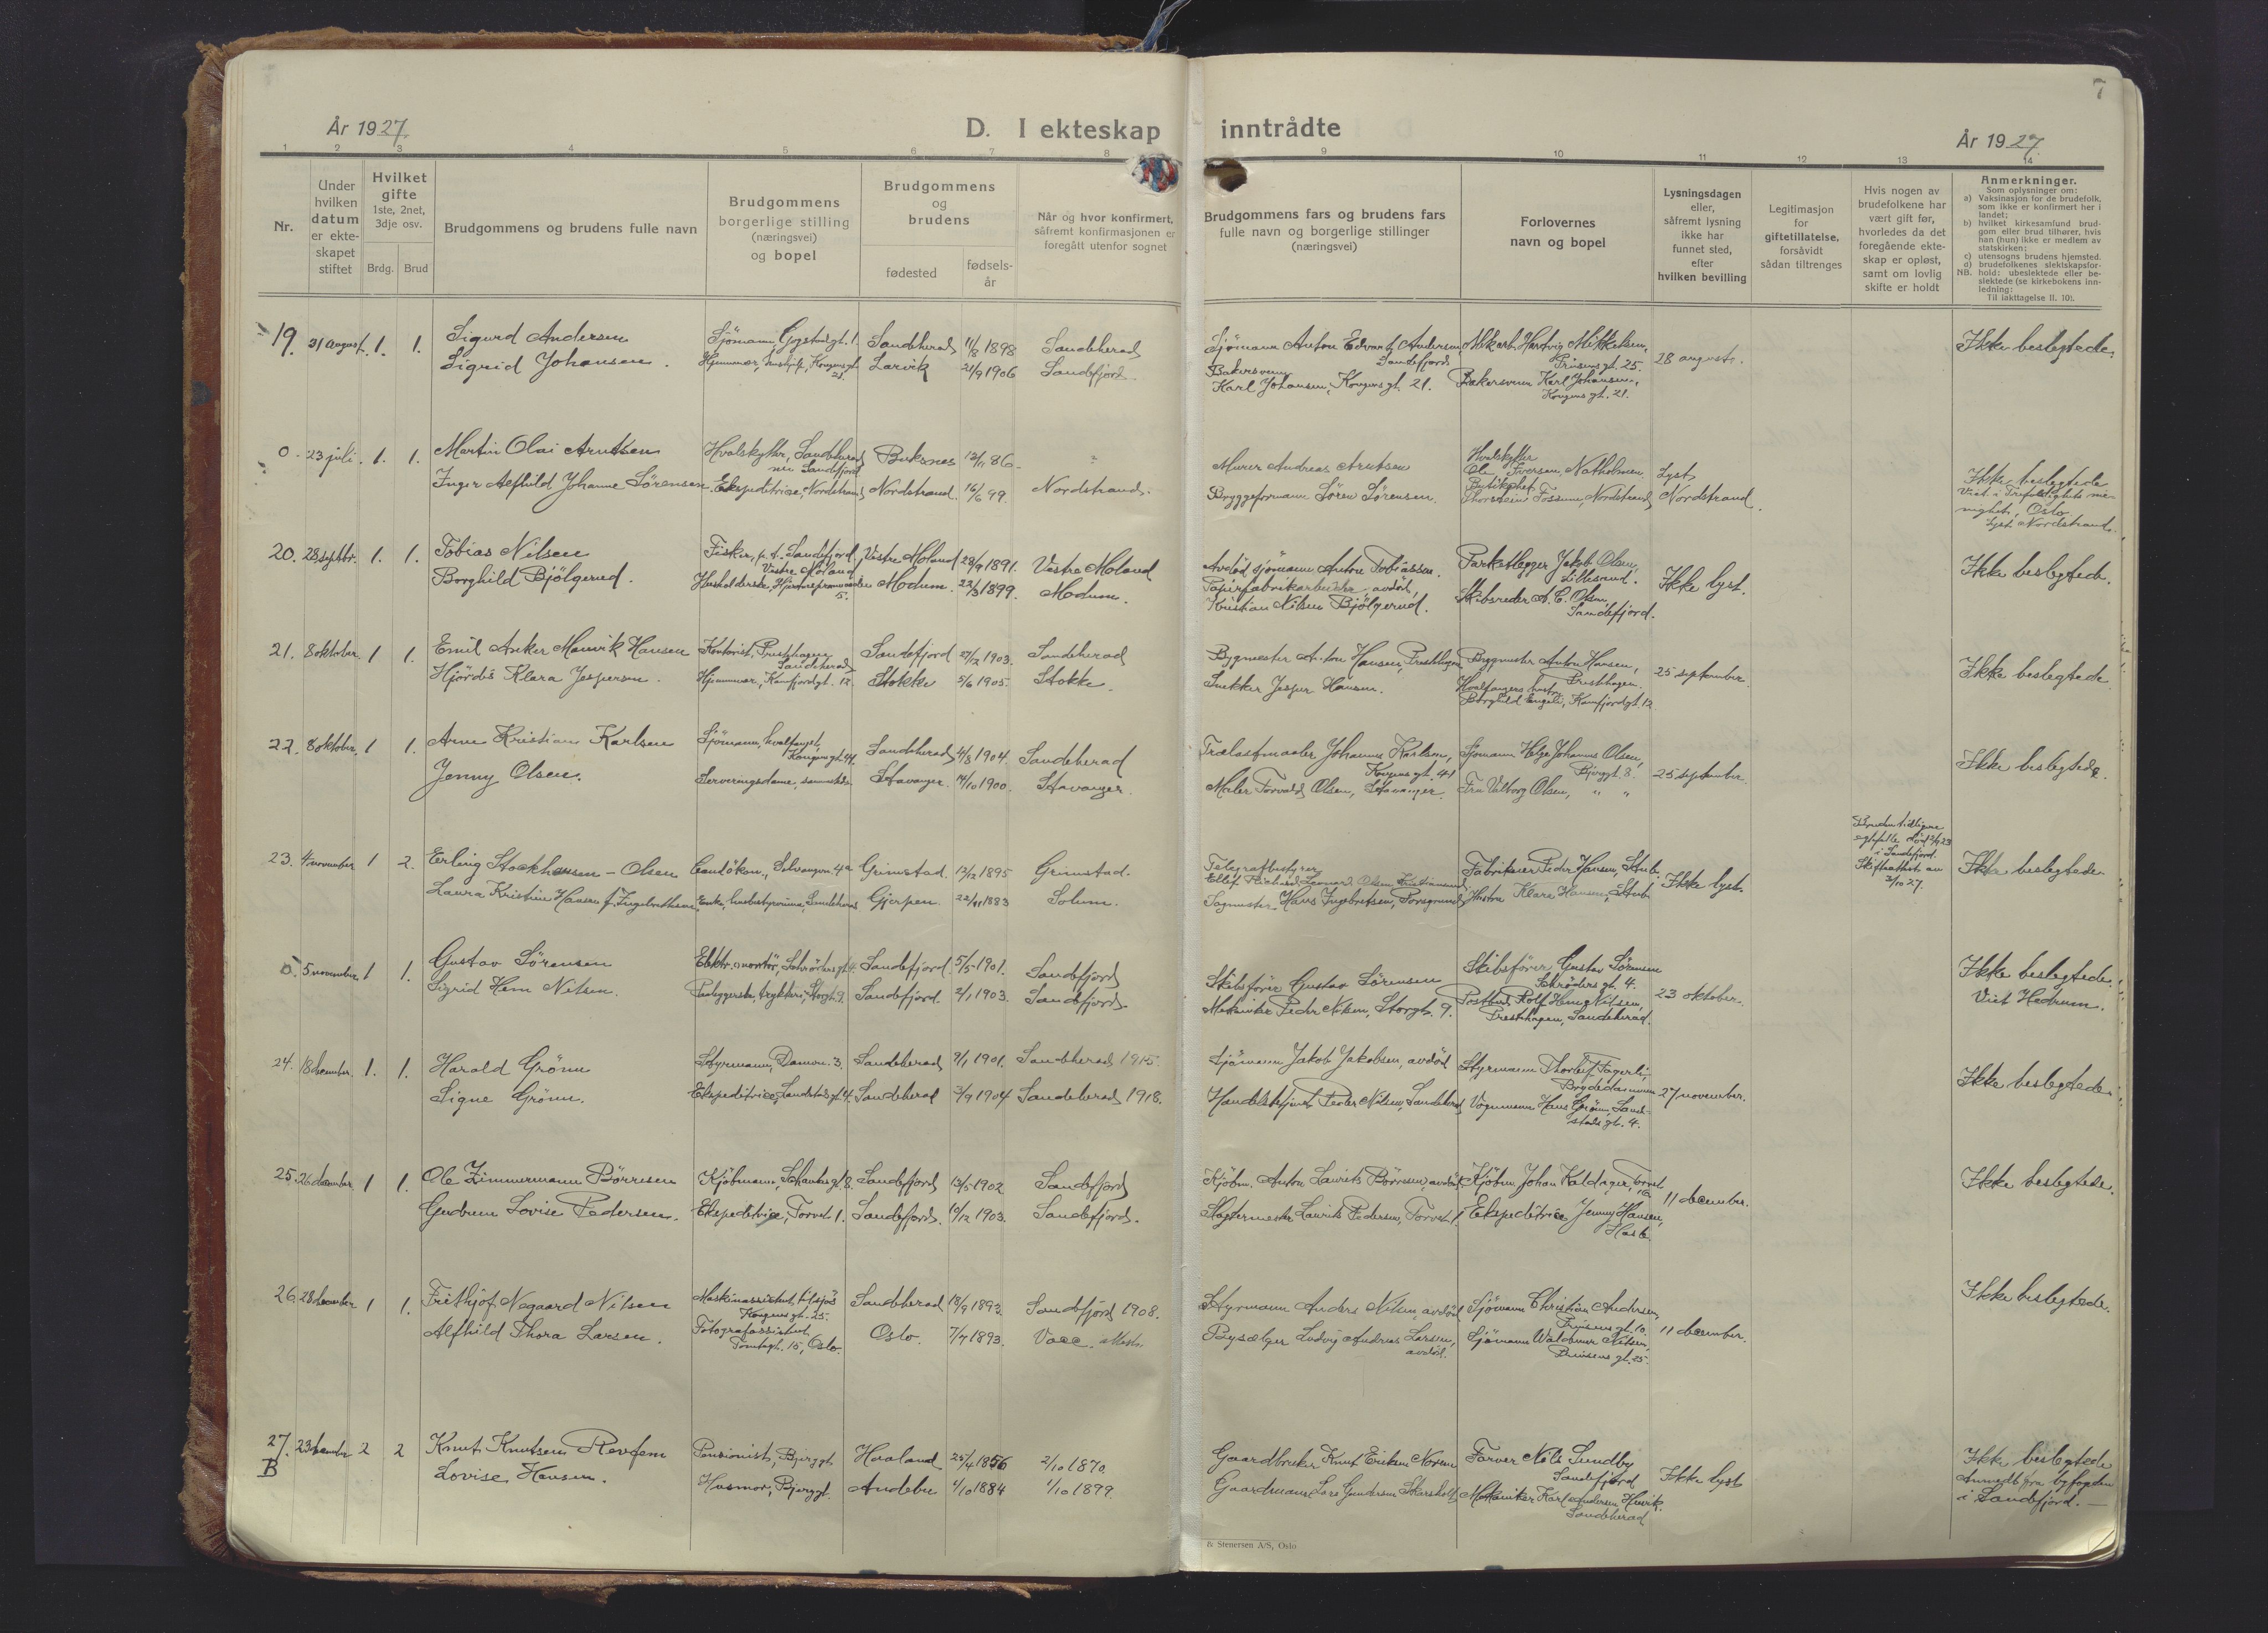 7
År 1927.
D. I ekteskap inntrådte
År 1927.
1 2 3 4 5 6 7 8 9 10 11 12 13 14
Nr.
Under
hvilken
datum
er ekte-
skapet
stiftet
Hvilket
gifte
1ste, 2net,
3dje osv.
Brdg. Brud
Brudgommens og brudens fulle navn
Brudgommens
borgerlige stilling
(næringsvei)
og bopel
Brudgommens
og
brudens
fødested
fødsels-
år
Når og hvor konfirmert,
såfremt konfirmasjonen er
foregått utenfor sognet
Brudgommens fars og brudens fars
fulle navn og borgerlige stillinger
(næringsvei)
Forlovernes
navn og bopel
Lysningsdagen
eller,
såfremt lysning
ikke har
funnet sted,
efter
hvilken bevilling
Legitimasjon
for
giftetillatelse,
forsåvidt
sådan tiltrenges
Hvis nogen av
brudefolkene har
vært gift før,
hvorledes da det
foregående ekte-
skap er opløst,
samt om lovlig
skifte er holdt
Anmerkninger.
Som oplysninger om:
a) Vaksinasjon for de brudefolk,
som ikke er konfirmert her i
landet;
b) hvilket kirkesamfund brud-
gom eller brud tilhører, hvis
han (hun) ikke er medlem av
statskirken;
c) utensogns brudens hjemsted.
d) brudefolkenes slektskapsfor-
NB. hold: ubeslektede eller be-
slektede (se kirkebokens inn-
ledning:
Til iakttagelse II. 10).
19. 31 august. 1. 1.
Sigurd Andersen
Sigrid Johansen.
Sjömann,
Hjemmevær, Kongens gt.
21.
Sandeherad 11/8 1898 Sandeherad
Larvik 21/9 1906 Sandefjord.
Sjömann Anton Edvart Andersen,
Sandefjord
Bakersvenn
Karl Johansen, Kongens gt. 21.
Hartvig Mikkelsen,
Prinsens gt. 25.
Bakersvenn Karl Johansen,
Kongens gt. 21.
28 august.
Ikke beslegtede.
0. 23 juli. 1. 1.
Martin Olai Arntsen
Inger Alfhild Johanne Sörensen.
Hvalskytter, Sandeherad
nær Sandefjord
Ekspeditrice, Nordstrand
Buksnes 12/11 86. ?
Nordstrand. 16/6 99. Nordstrand.
Murer Andreas Arntsen
Bryggeformann Sören Sörensen.
Hvalskytter
Ole Iversen, Natholmen
Butikchef
Thorstein Fossum, Nordstrand
Lyst
Nordstrand.
Ikke beslegtede
Viet i Trefoldighets me-
nighet, Oslo.
Lyst Nordstrand.
20. 28 septbr. 1. 1.
Tobias Nilsen
Borghild Bjölgerud.
Fisker, p.t. Sandefjord,
Vestre Moland
Husholderske, Hjertnespromenaden
5.
Vestre Moland 28/9 1891. Vestre Moland
Modum. 22/3 1899. Modum.
Avdöd sjömann Anton Tobiassen.
Papirfabrikarbeider, avdöd,
Kristian Nilsen Bjölgerud.
Parketlegger Jakob Olsen,
Lillesand.
Skibsreder A. C. Olsen,
Sandefjord.
Ikke lyst.
Ikke beslegtede.
21. 8 oktober. 1 1.
Emil Anker Manvik Hansen
Hjördis Klara Jespersen.
Kontorist, Presthagen,
Sandeherad
Hjemmevær, Kamfjordgt. 12.
Sandefjord 27/12 1903. Sandeherad
Stokke 5/6 1905. Stokke.
Bygmester Anton Hansen, Presthagen
Snekker Jesper Hansen.
Bygmester Anton Hansen,
Presthagen,
Hvalfangers hustru
Borghild Engeli, Kamfjordgt. 12.
25 september.
Ikke beslegtede.
22. 8 oktober. 1 1.
Arne Kristian Karlsen
Jenny Olsen.
Sjömann, hvalfangst,
Kongens gt. 41
Serveringsdame, sammesteds
Sandeherad 4/8 1904. Sandeherad
Stavanger. 14/10 1900. Stavanger.
Trælastmaaler Johannes Karlsen,
Kongens gt. 41
Maler Torvald Olsen, Stavanger.
Sjömann Helge Johannes Olsen,
Bjerggt. 8.
Fru Valborg Olsen, " "
25 september.
Ikke beslegtede.
23. 4 november 1 2.
Erling Stockhausen-Olsen
Laura Kristine Hansen f. Ingebrethsen
Cand. ökon.,
Enke, husbestyrerinne, Sandeherad
Grimstad. 13/12 1895 Grimstad.
Gjerpen. 22/11 1883 Solum.
Telegrafbestyrer
Ellef Richard Olsen, Kristiansund
Sagmester Hans Ingebretsen, Porsgrund
Fabrikeier Peder Hansen, Stub.
Hustru Klara Hansen, Stub.
Ikke lyst.
Bruden tidligere
i Sandefjord.
Skifteattest av
2/10 27.
Ikke beslegtede.
0. 5 november. 1 1.
Gustav Sörensen
Sigrid Hem Nilsen.
Elektr. montör, Schröders gt. 4.
trykkeri, Storgt. 9.
Sandefjord. 5/5 1901. Sandefjord
Sandefjord. 2/1 1903. Sandefjord.
Skibsförer Gustav Sörensen
Mekaniker Peder Nilsen, Storgt. 9.
Skibsförer Gustav Sörensen
Schröders gt. 4.
Postbud Rolf Hem Nilsen,
Presthagen, Sandeherad.
23 oktober.
Ikke beslegtede.
Viet Hedrum.
24. 18 december. 1. 1.
Harald Grönn
Signe Grönn.
Styrmann, Damvn. 3.
Ekspeditrice, Landstads gt. 4.
Sandeherad 1901. Sandeherad 1915.
Sandeherad 3/9 1904 Sandeherad 1918.
Sjömann Jakob Jakobsen, avdöd
Handelsbetjent Peder Nilsen, Sandeherad
Styrmann Thorleif Fagerli,
Brydedamveien
Vognmann Hans Grönn, Land-
stads gt. 4.
27 november.
Ikke beslegtede.
25. 26 december. 1 1.
Ole Zimmermann Börresen
Gudrun Lovise Pedersen.
Kjöbmann, gt. 8.
Ekspeditrice, Torvet 1.
Sandefjord 13/5 1902 Sandefjord
Sandefjord. 10/12 1903. Sandefjord.
Kjöbm. Anton Laurits Börresen, avdöd
Slagtermester Laurits Pedersen, Torvet 1.
Kjöbm. Johan Kaldager, Torvet
Ekspeditrice Jenny Hansen,
Hasle.
11 december.
Ikke beslegtede.
26. 28 december 1 1.
Frithjof Nøgaard Nilsen
Alfhild Thora Larsen.
Maskinassistent tilsjös
Kongens gt. 25.
Fotografassistent,
Tomtegt. 15, Oslo.
Sandeherad 18/9 1893. Sandefjord 1908.
Oslo. 7/7 1893. Vacc. attest.
Styrmann Anders Nilsen, avdöd
Bysælger Ludvig Andreas Larsen,
avdöd.
Sjömann Christian Andersen,
Prinsens gt. 10.
Sjömann Waldemar Nilsen,
Prinsens gt. 25.
11 december.
Ikke beslegtede.
27. 23 december 2 2
B
Knut Knutsen Revfem
Lovise Hansen.
Pensionist, Bjerggt.
Husmor, Bjerggt.
Hovland 25/4 1856 2/10 1870
Andebu 1/10 1884 1/10 1899.
Gaardbruker Knut Eriksen
Gaardmann Lars Gundersen
Farver Nils Sundby
Sandefjord
Mekaniker Karl Andersen Huvik.
Sandeherad
Ikke lyst
Ikke beslegtede
Anmeldt fra byfogden
i Sandefjord.
& Stenersen A/S, Oslo